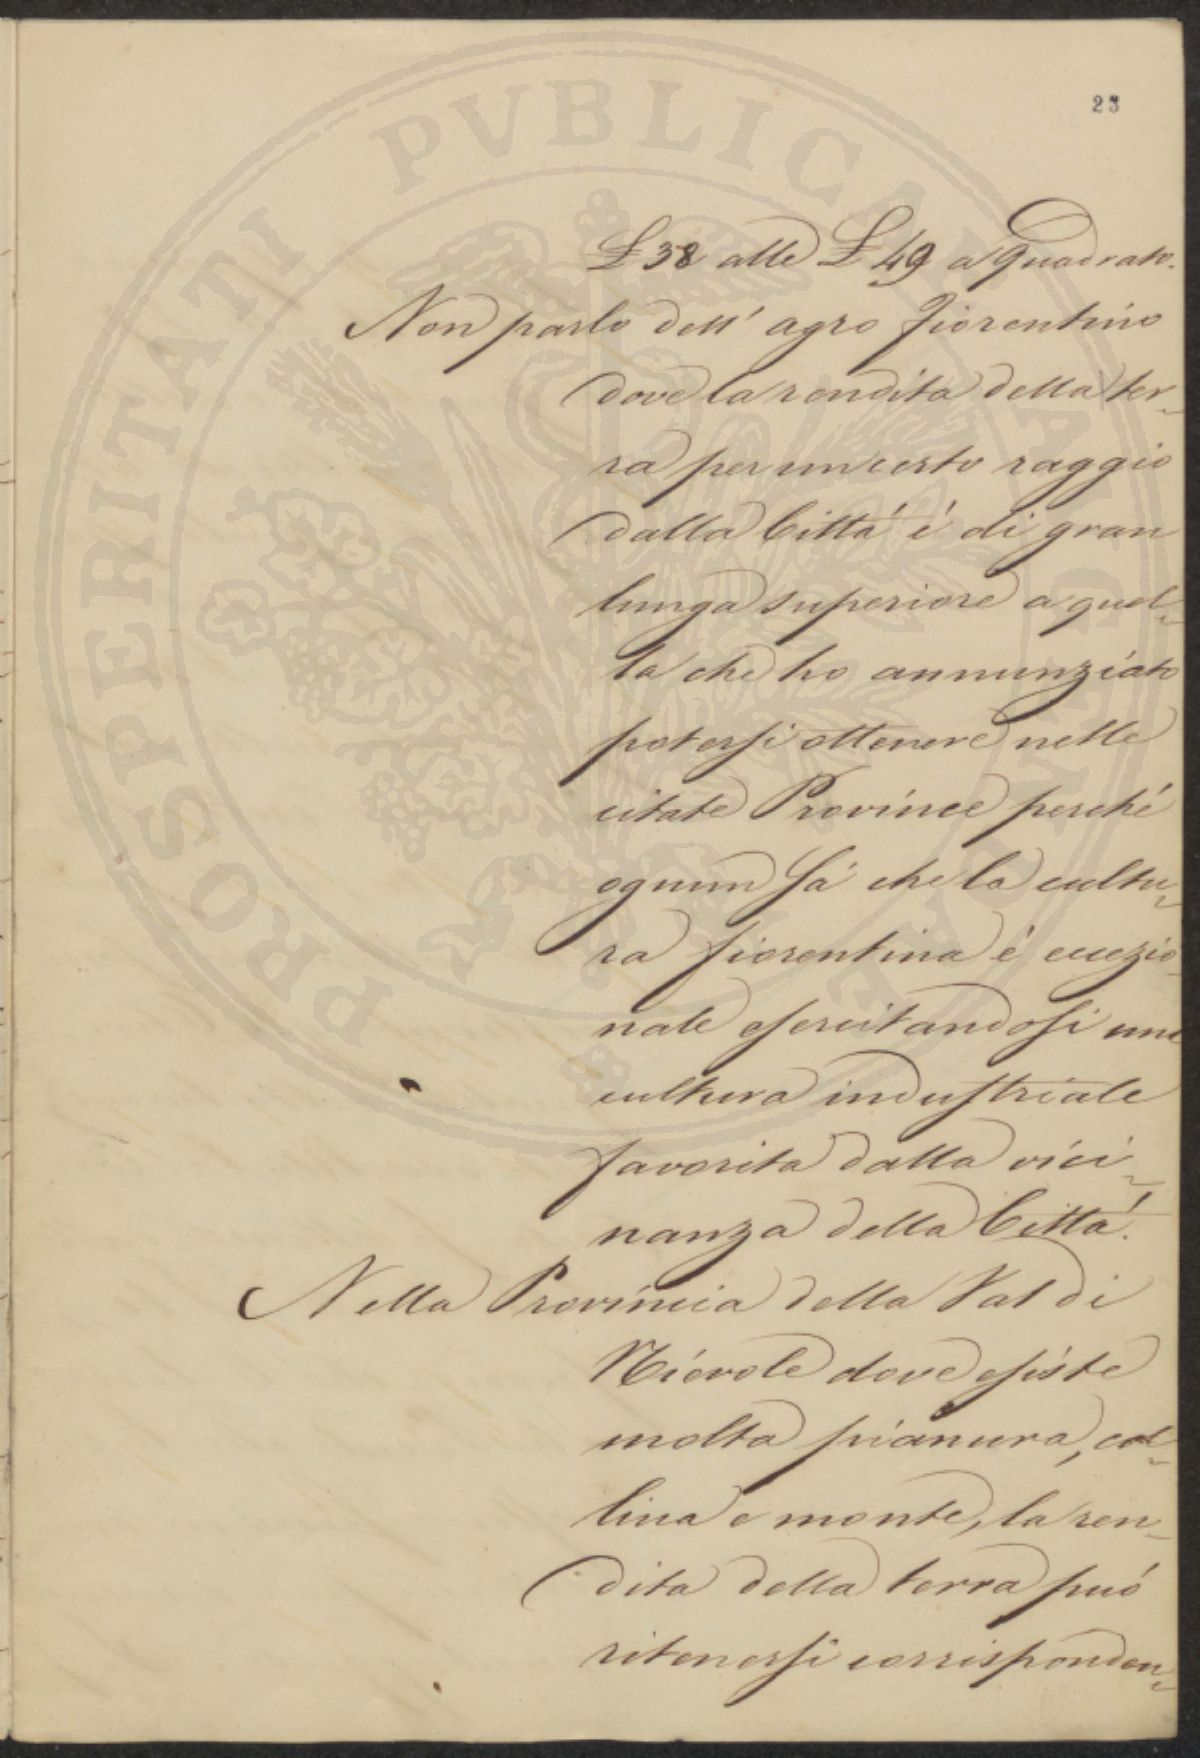 23
£ 38 alle £ 49 a Quadrato.
Non parlo dell' agro fiorentino
dove la rendita della ter-
ra per un certo raggio
dalla Città é di gran
lunga superiore a quel-
la che ho annunziato
potersi ottenere nelle
citate Provincie perché
ognun sá che la cultu-
ra fiorentina é eccezio-
nale esercitandosi una
cultura industriale
favorita dalla vici-
nanza della Città.
Nella Provincia della Val di
Niévole dove esiste
molta pianura, col-
lina e monte, la ren-
dita della terra puó
ritenersi corrisponden-
PROSPERITATI PVBLICAE AVGENDAE